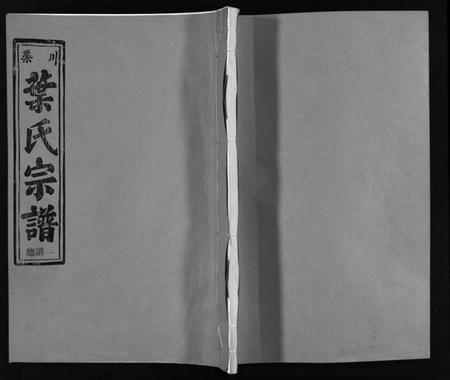 川采
葉氏宗譜
總譜一